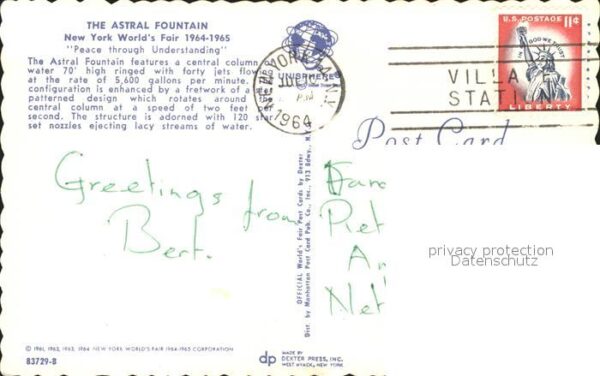 THE ASTRAL FOUNTAIN
New York World's Fair 1964-1965
"Peace through Understanding"
The Astral Fountain features a central column
water 70' high ringed with forty jets flowing
at the rate of 5,600 gallons per minute.
configuration is enhanced by a fretwork of a star
patterned design which rotates around the
central column at a speed of two feet per
second. The structure is adorned with 120 star
set nozzles ejecting lacy streams of water.
UNISPHERE
1964
VILLA
STATI
U.S. POSTAGE 11¢
IN GOD WE TRUST
LIBERTY
Post Card
Greetings from
Bert.
Fam
Piet
Ar
Net
privacy protection
Datenschutz
OFFICIAL World's Fair Post Cards by Dexter
Dist. by Manhattan Post Card Pub. Co., Inc., 913 Bdwy., N.Y.
© 1961, 1962, 1963, 1964 NEW YORK WORLD'S FAIR 1964-1965 CORPORATION
83729-B
dp
MADE BY
DEXTER PRESS, INC.
WEST NYACK, NEW YORK